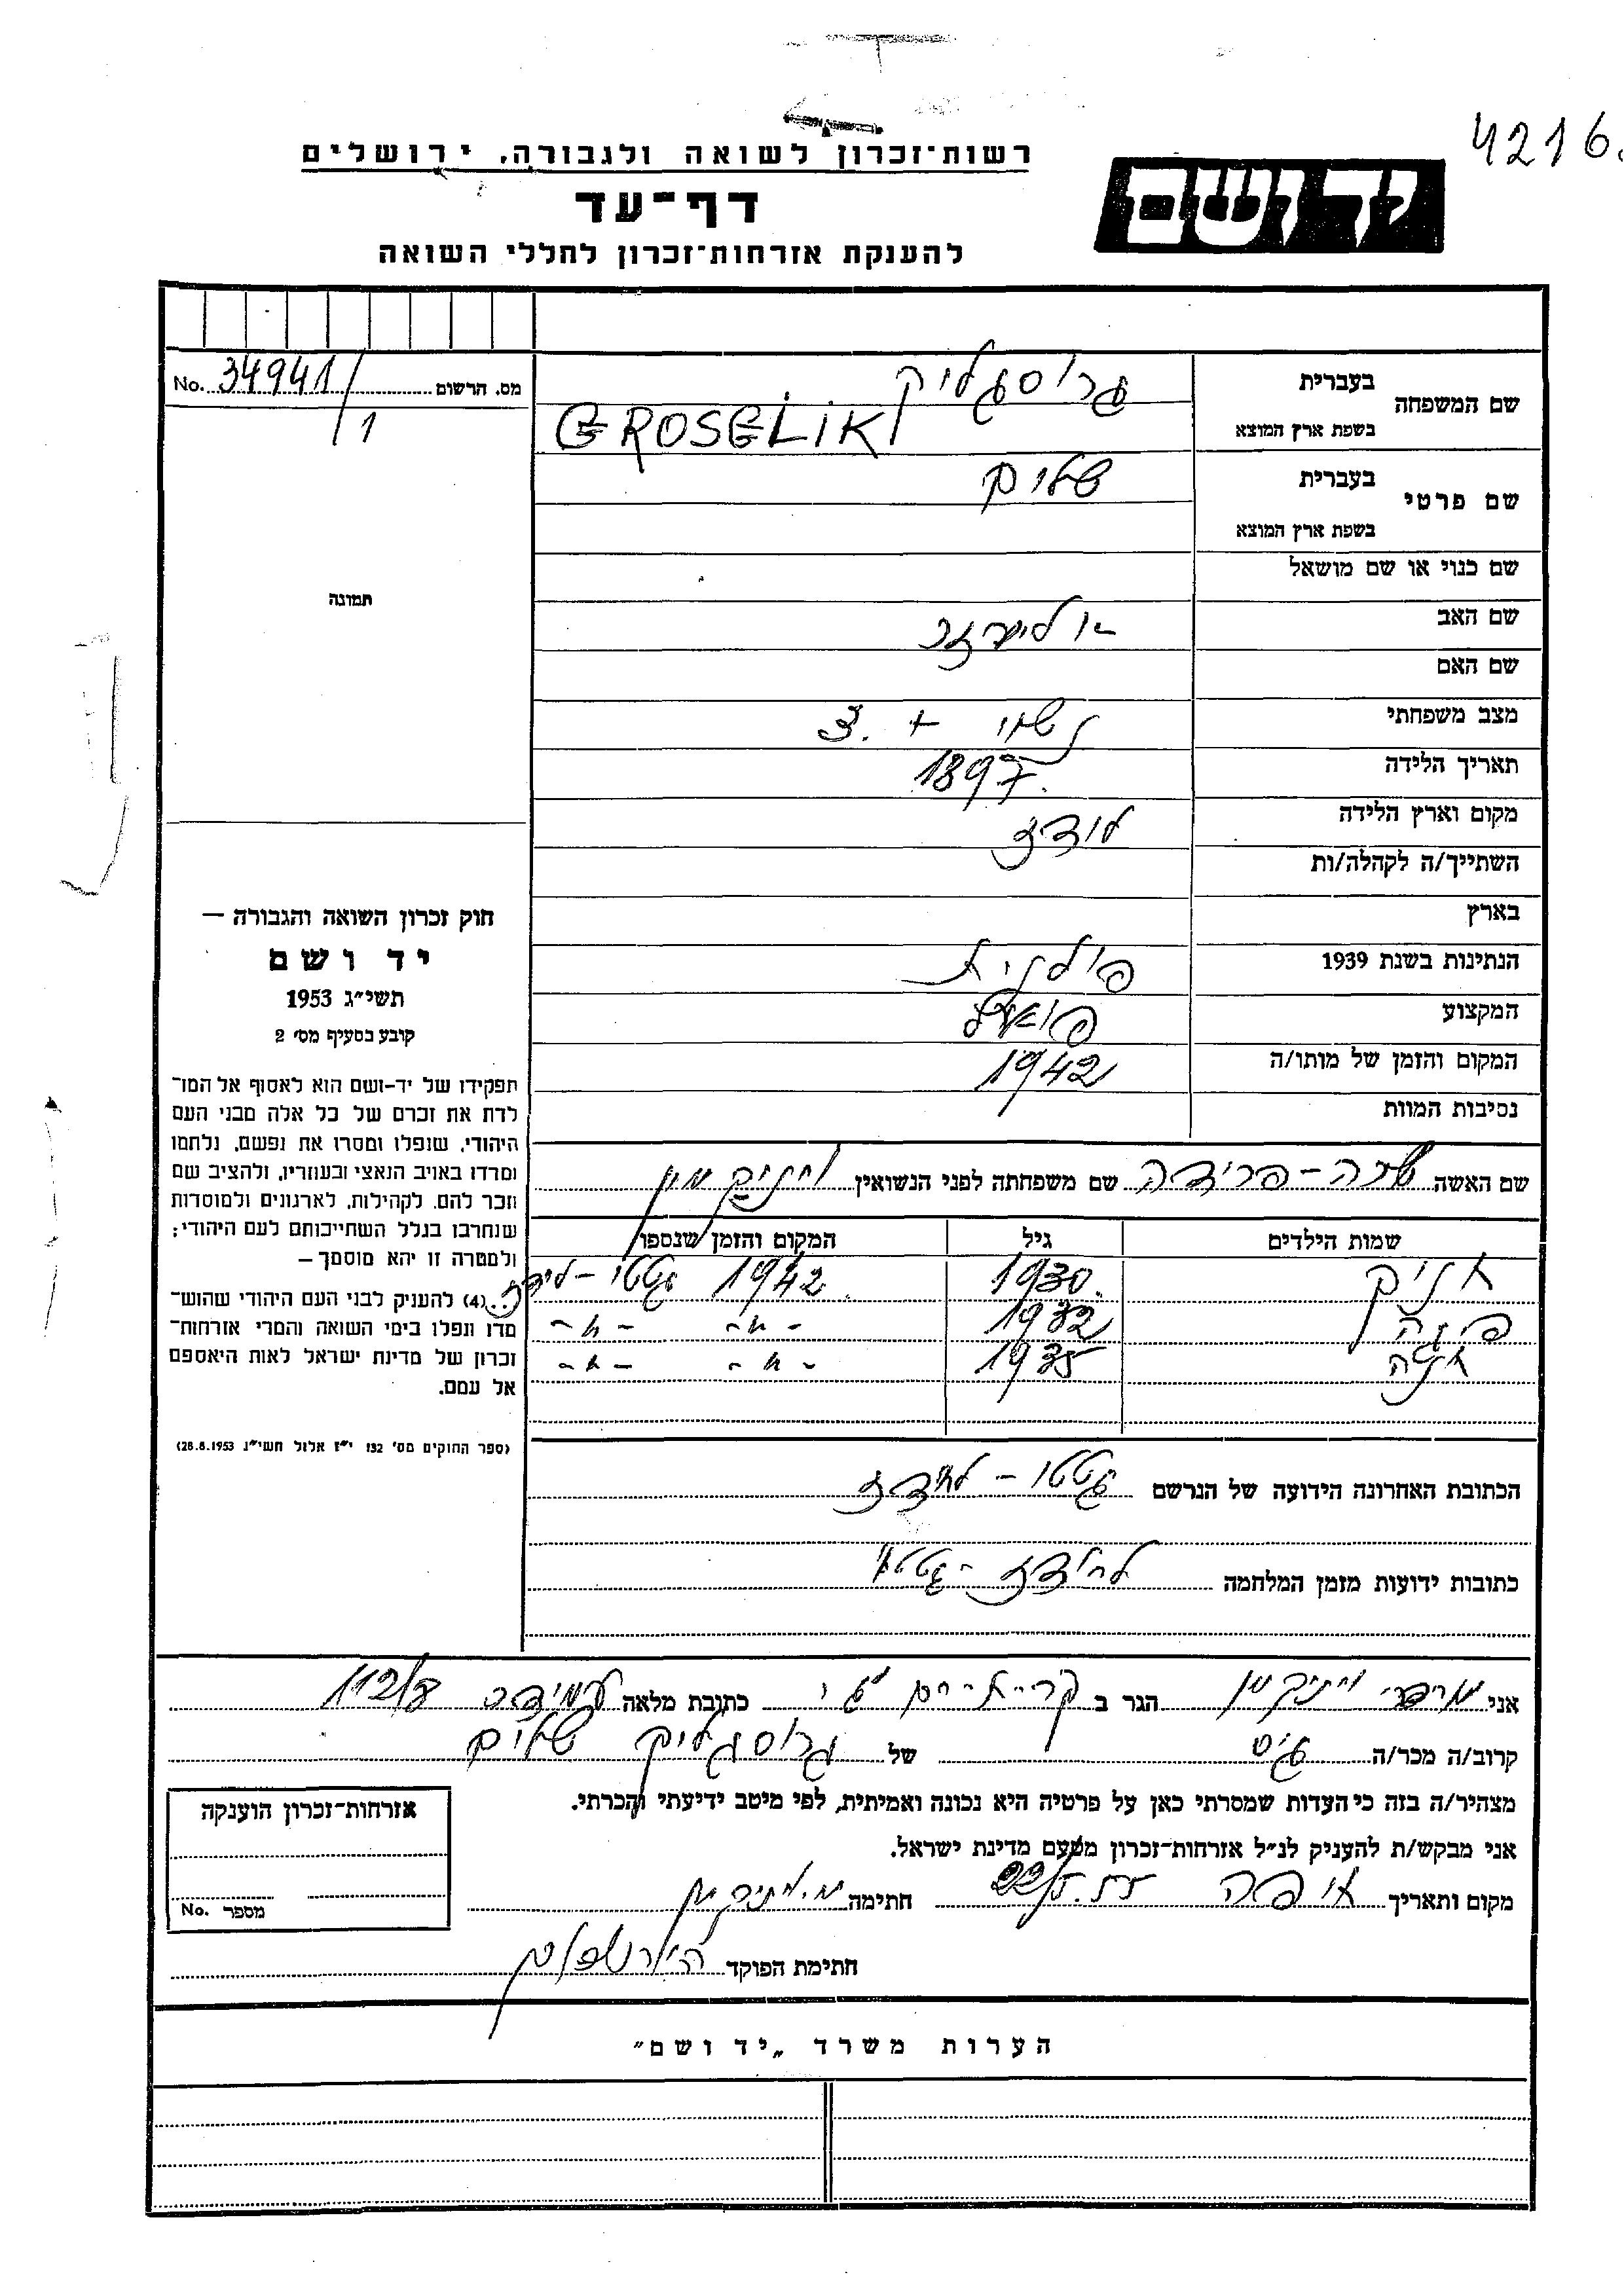 4216
רשות־זכרון לשואה ולגבורה, ירושלים
דף־עד
להענקת אזרחות־זכרון לחללי השואה
ידושם
מס. הרשום 34941/1 No.
תמונה
שם המשפחה
בעברית גרוסגליק
בשפת ארץ המוצא GROSGLIK
שם פרטי
בעברית שלום
בשפת ארץ המוצא
שם כנוי או שם מושאל
שם האב אליעזר
שם האם
מצב משפחתי נשוי + 3.
תאריך הלידה 1897
מקום וארץ הלידה לודז
השתייך/ה לקהלה/ות
בארץ
הנתינות בשנת 1939 פולנית
המקצוע פועל
המקום והזמן של מותו/ה 1942
נסיבות המוות
חוק זכרון השואה והגבורה —
יד ושם
תשי״ג 1953
קובע בסעיף מס׳ 2
תפקידו של יד־ושם הוא לאסוף אל המו־
לדת את זכרם של כל אלה מבני העם
היהודי, שנפלו ומסרו את נפשם, נלחמו
ומרדו באויב הנאצי ובעוזריו, ולהציב שם
וזכר להם, לקהילות, לארגונים ולמוסדות
שנחרבו בגלל השתייכותם לעם היהודי;
ולמטרה זו יהא מוסמך —
(4) להעניק לבני העם היהודי שהוש־
מדו ונפלו בימי השואה והמרי אזרחות־
זכרון של מדינת ישראל לאות היאספם
אל עמם.
(ספר החוקים מס׳ 132 י״ז אלול תשי״ג 28.8.1953)
שם האשה פרידה שם משפחתה לפני הנשואין
שמות הילדים גיל המקום והזמן שנספו
1930 1942 גטטו - לודז
1932 -״- -״-
1935 -״- -״-
הכתובת האחרונה הידועה של הנרשם גטטו - לודז
כתובות ידועות מזמן המלחמה לודז - גטטו
אני מרדכי הגר ב כתובת מלאה עמידר 112/8
קרוב/ה מכר/ה גיס של גרוסגליק שלום
מצהיר/ה בזה כי העדות שמסרתי כאן על פרטיה היא נכונה ואמיתית, לפי מיטב ידיעתי והכרתי.
אני מבקש/ת להעניק לנ״ל אזרחות־זכרון מטעם מדינת ישראל.
מקום ותאריך חתימה
חתימת הפוקד
אזרחות־זכרון הוענקה
מספר No.
הערות משרד „יד ושם״